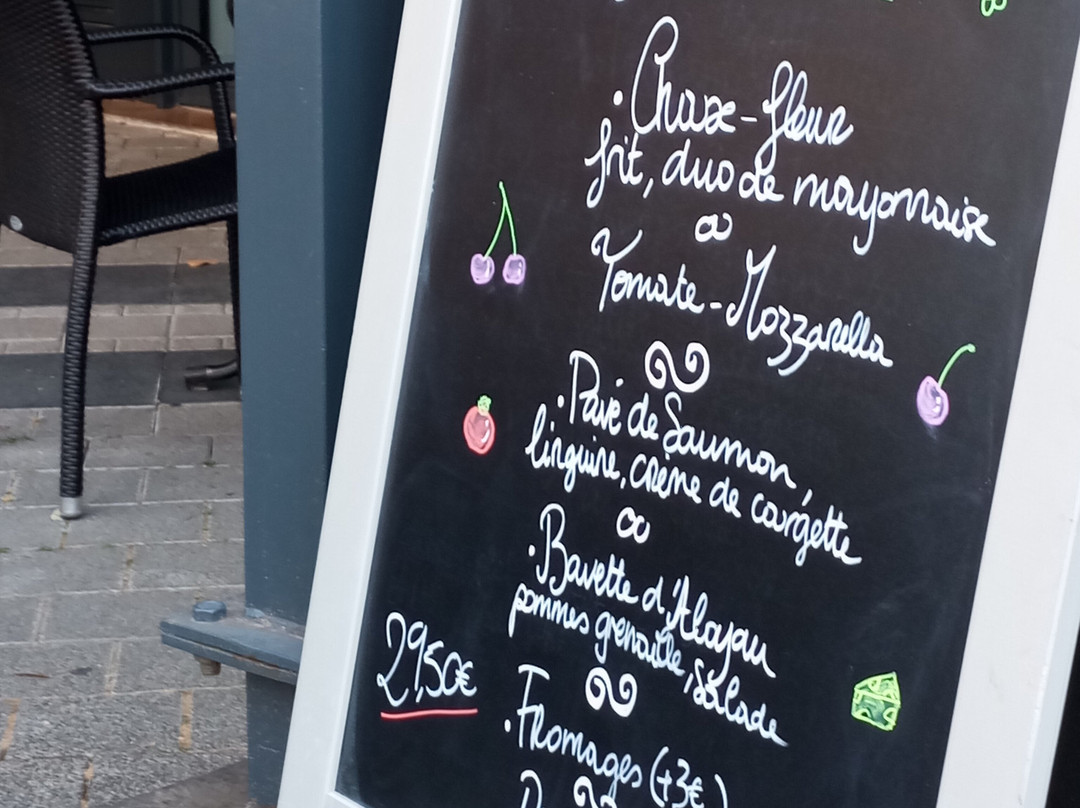 · Choux-fleur
frit, duo de mayonnaise
ou
Tomate-Mozzarella
· Pavé de Saumon,
linguine, crème de courgette
ou
· Bavette d'Aloyau
pommes grenaille, salade
29,50€
· Fromages (+3€)